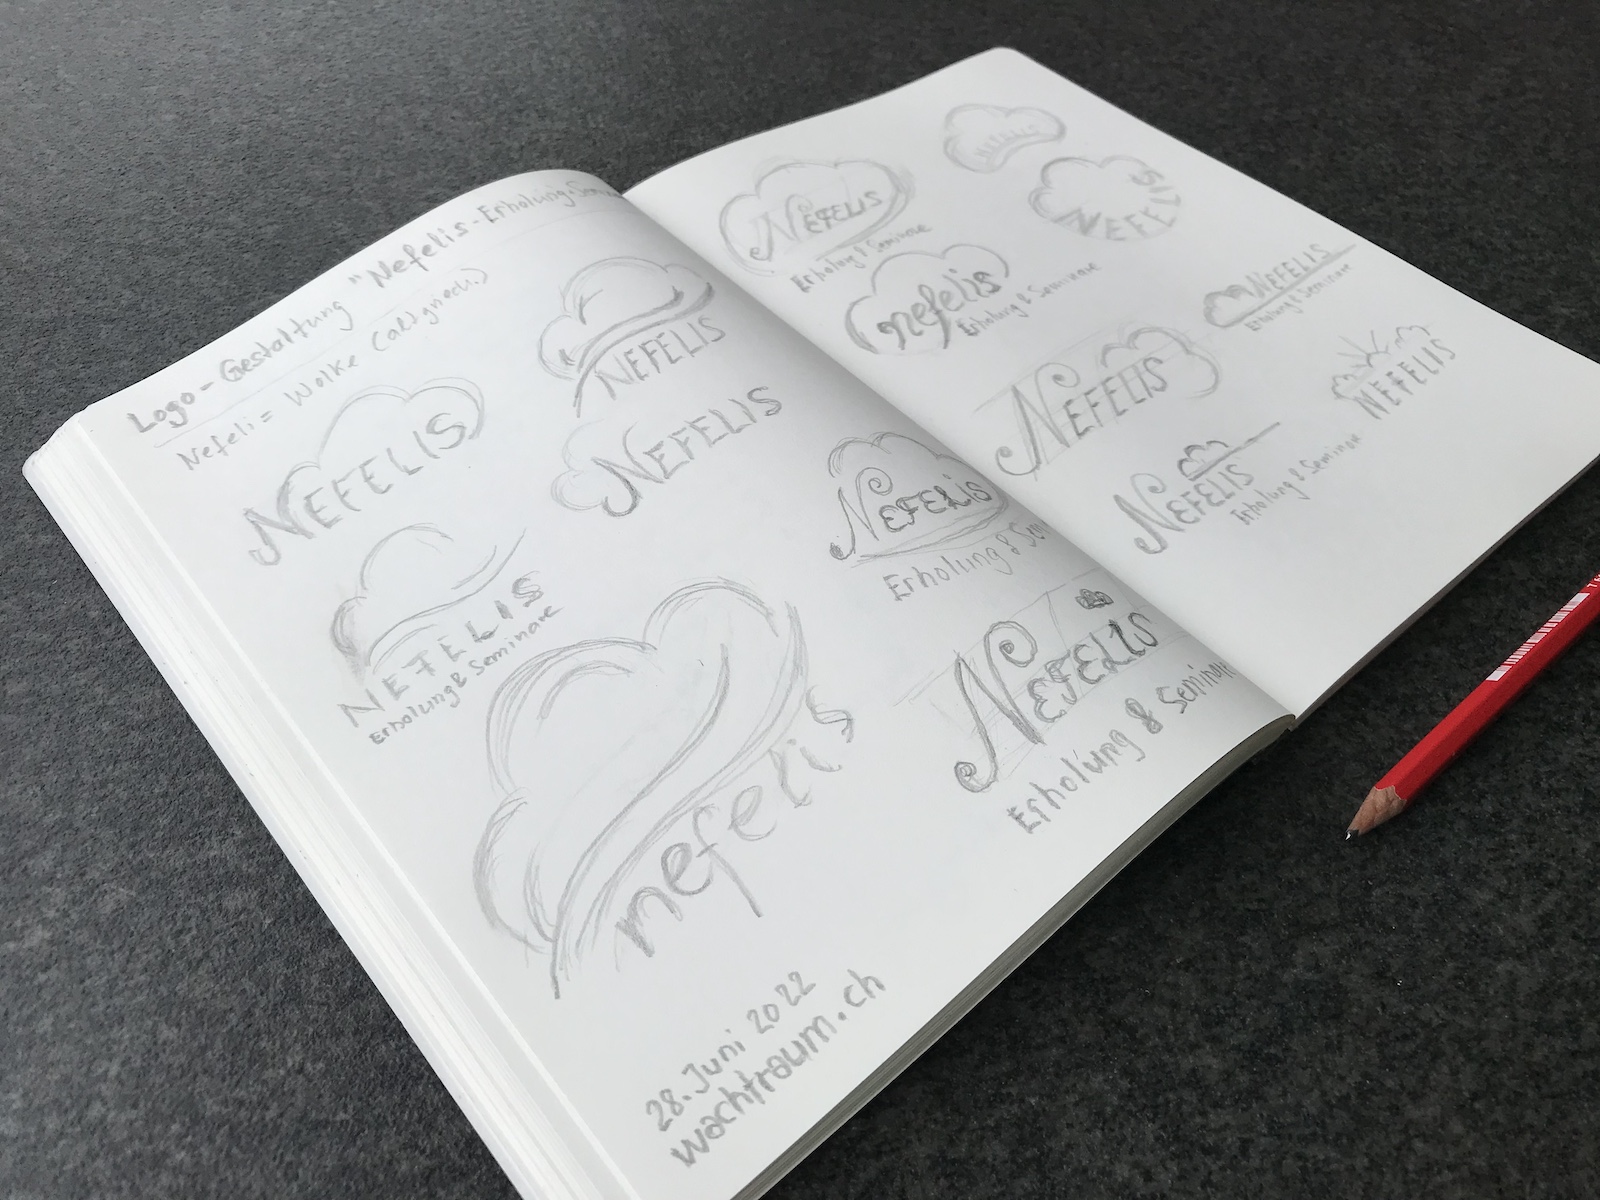 Logo-Gestaltung "Nefelis-Erholung&
Nefeli = Wolke
NEFELIS
NEFELIS
NEFELIS
NEFELIS
Erholung & Seminare
nefelis
NEFELIS
Erholung &
NEFELIS
Erholung & Seminare
28. Juni 2022
wachtraum.ch
NEFELIS
Erholung & Seminare
NEFELIS
nefelis
Erholung & Seminare
NEFELIS
Erholung & Seminare
NEFELIS
NEFELIS
NEFELIS
Erholung & Seminare